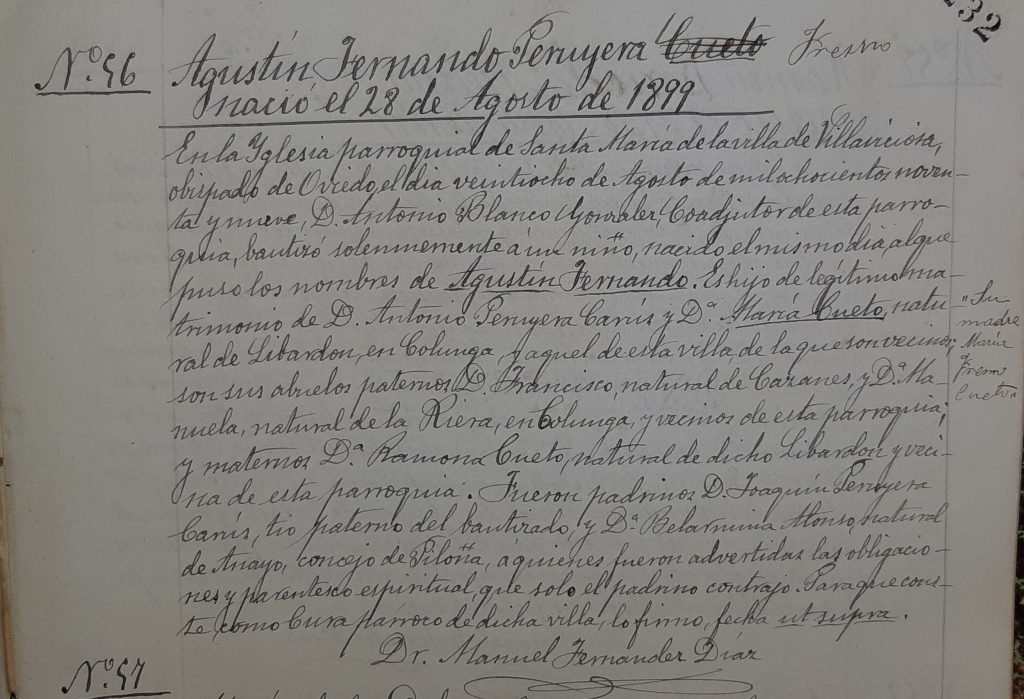 232
Nº. 56
Agustín Fernando Peruyera Cueto Fresno
nació el 28 de Agosto de 1899
En la Yglesia parroquial de Santa María de la villa de Villaviciosa,
obispado de Oviedo, el dia veintiocho de Agosto de mil ochocientos noven-
ta y nueve, D. Antonio Blanco Gonzalez, Coadjutor de esta parro-
quia, bautizó solemnemente á un niño, nacido el mismo dia, al que
puso los nombres de Agustín Fernando. Es hijo de legítimo ma-
trimonio de D. Antonio Peruyera Carús y Dª. María Cueto, natu-
ral de Libardon, en Colunga, y aquel de esta villa, de la que son vecinos;
son sus abuelos paternos D. Francisco, natural de Cazanes, y Dª. Ma-
nuela, natural de la Riera, en Colunga, y vecinos de esta parroquia;
y maternos Dª. Ramona Cueto, natural de dicho Libardon y veci-
na de esta parroquia. Fueron padrinos D. Joaquín Peruyera
Carús, tio paterno del bautizado, y Dª. Belarmina Alonso, natural
de Anayo, concejo de Piloña, á quienes fueron advertidas las obligacio-
nes y parentesco espiritual, que solo el padrino contrajo. Para que cons-
te, como Cura párroco de dicha villa, lo firmo, fecha ut supra.
Dr. Manuel Fernandez Díaz
"Su
madre
María
Fresno
Cueto"
Nº. 57